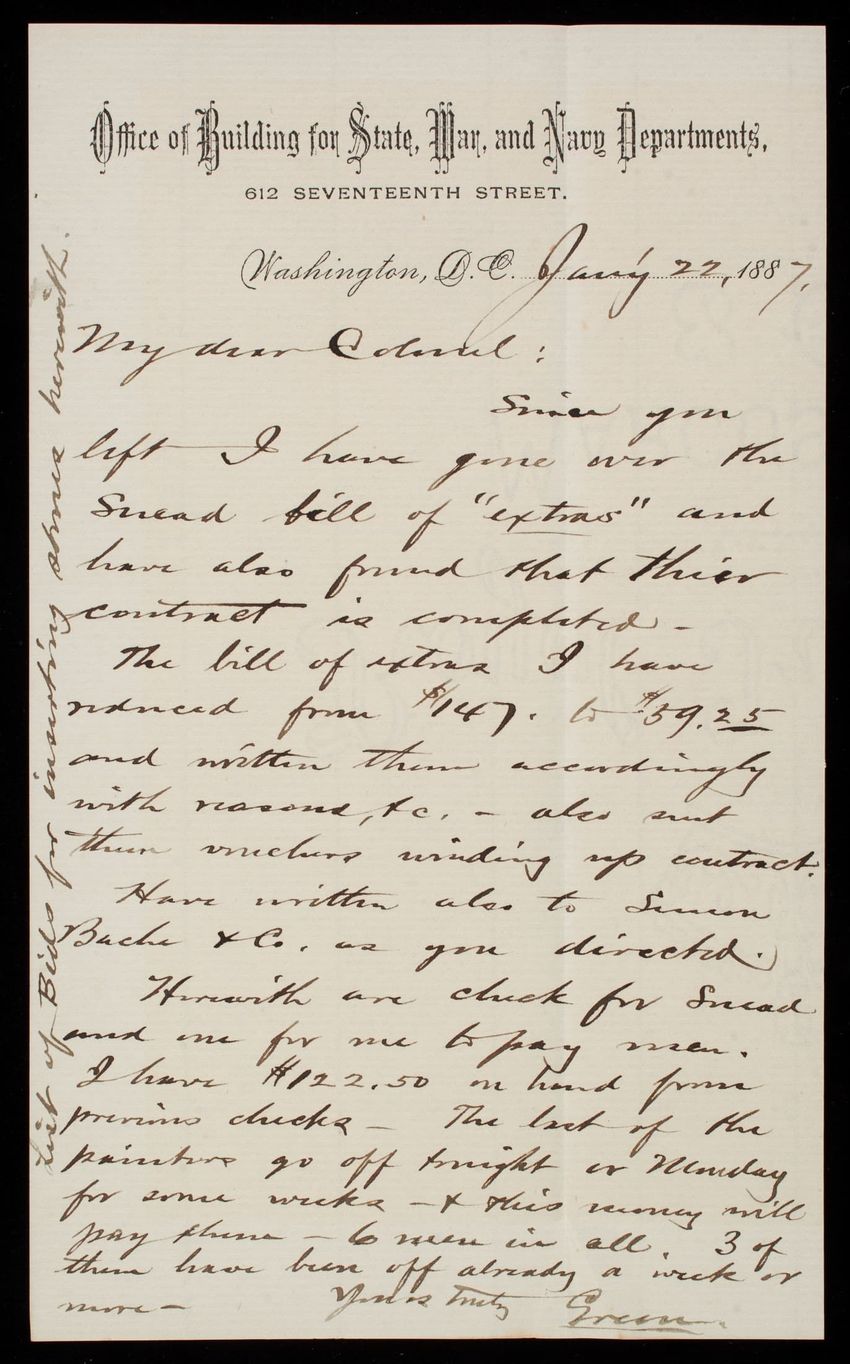 Office of Building for State, War, and Navy Departments,
612 SEVENTEENTH STREET.
Washington, D. C. Jan'y 22, 1887.
My dear Colonel:
Since you
left I have gone over the
Snead bill of "extras" and
have also found that their
contract is completed -
The bill of extras I have
reduced from $147. to $59.25
and written them accordingly
with reasons, &c. - also sent
them vouchers winding up contract.
Have written also to Simon
Bache & Co. as you directed.
Herewith are check for Snead
and one for me to pay men.
I have $122.50 on hand from
previous checks - The last of the
painters go off tonight or Monday
for some weeks - & this money will
pay them - 6 men in all. 3 of
them have been off already a week or
more -
Yours truly Green.
List of Bids for inserting stones herewith.